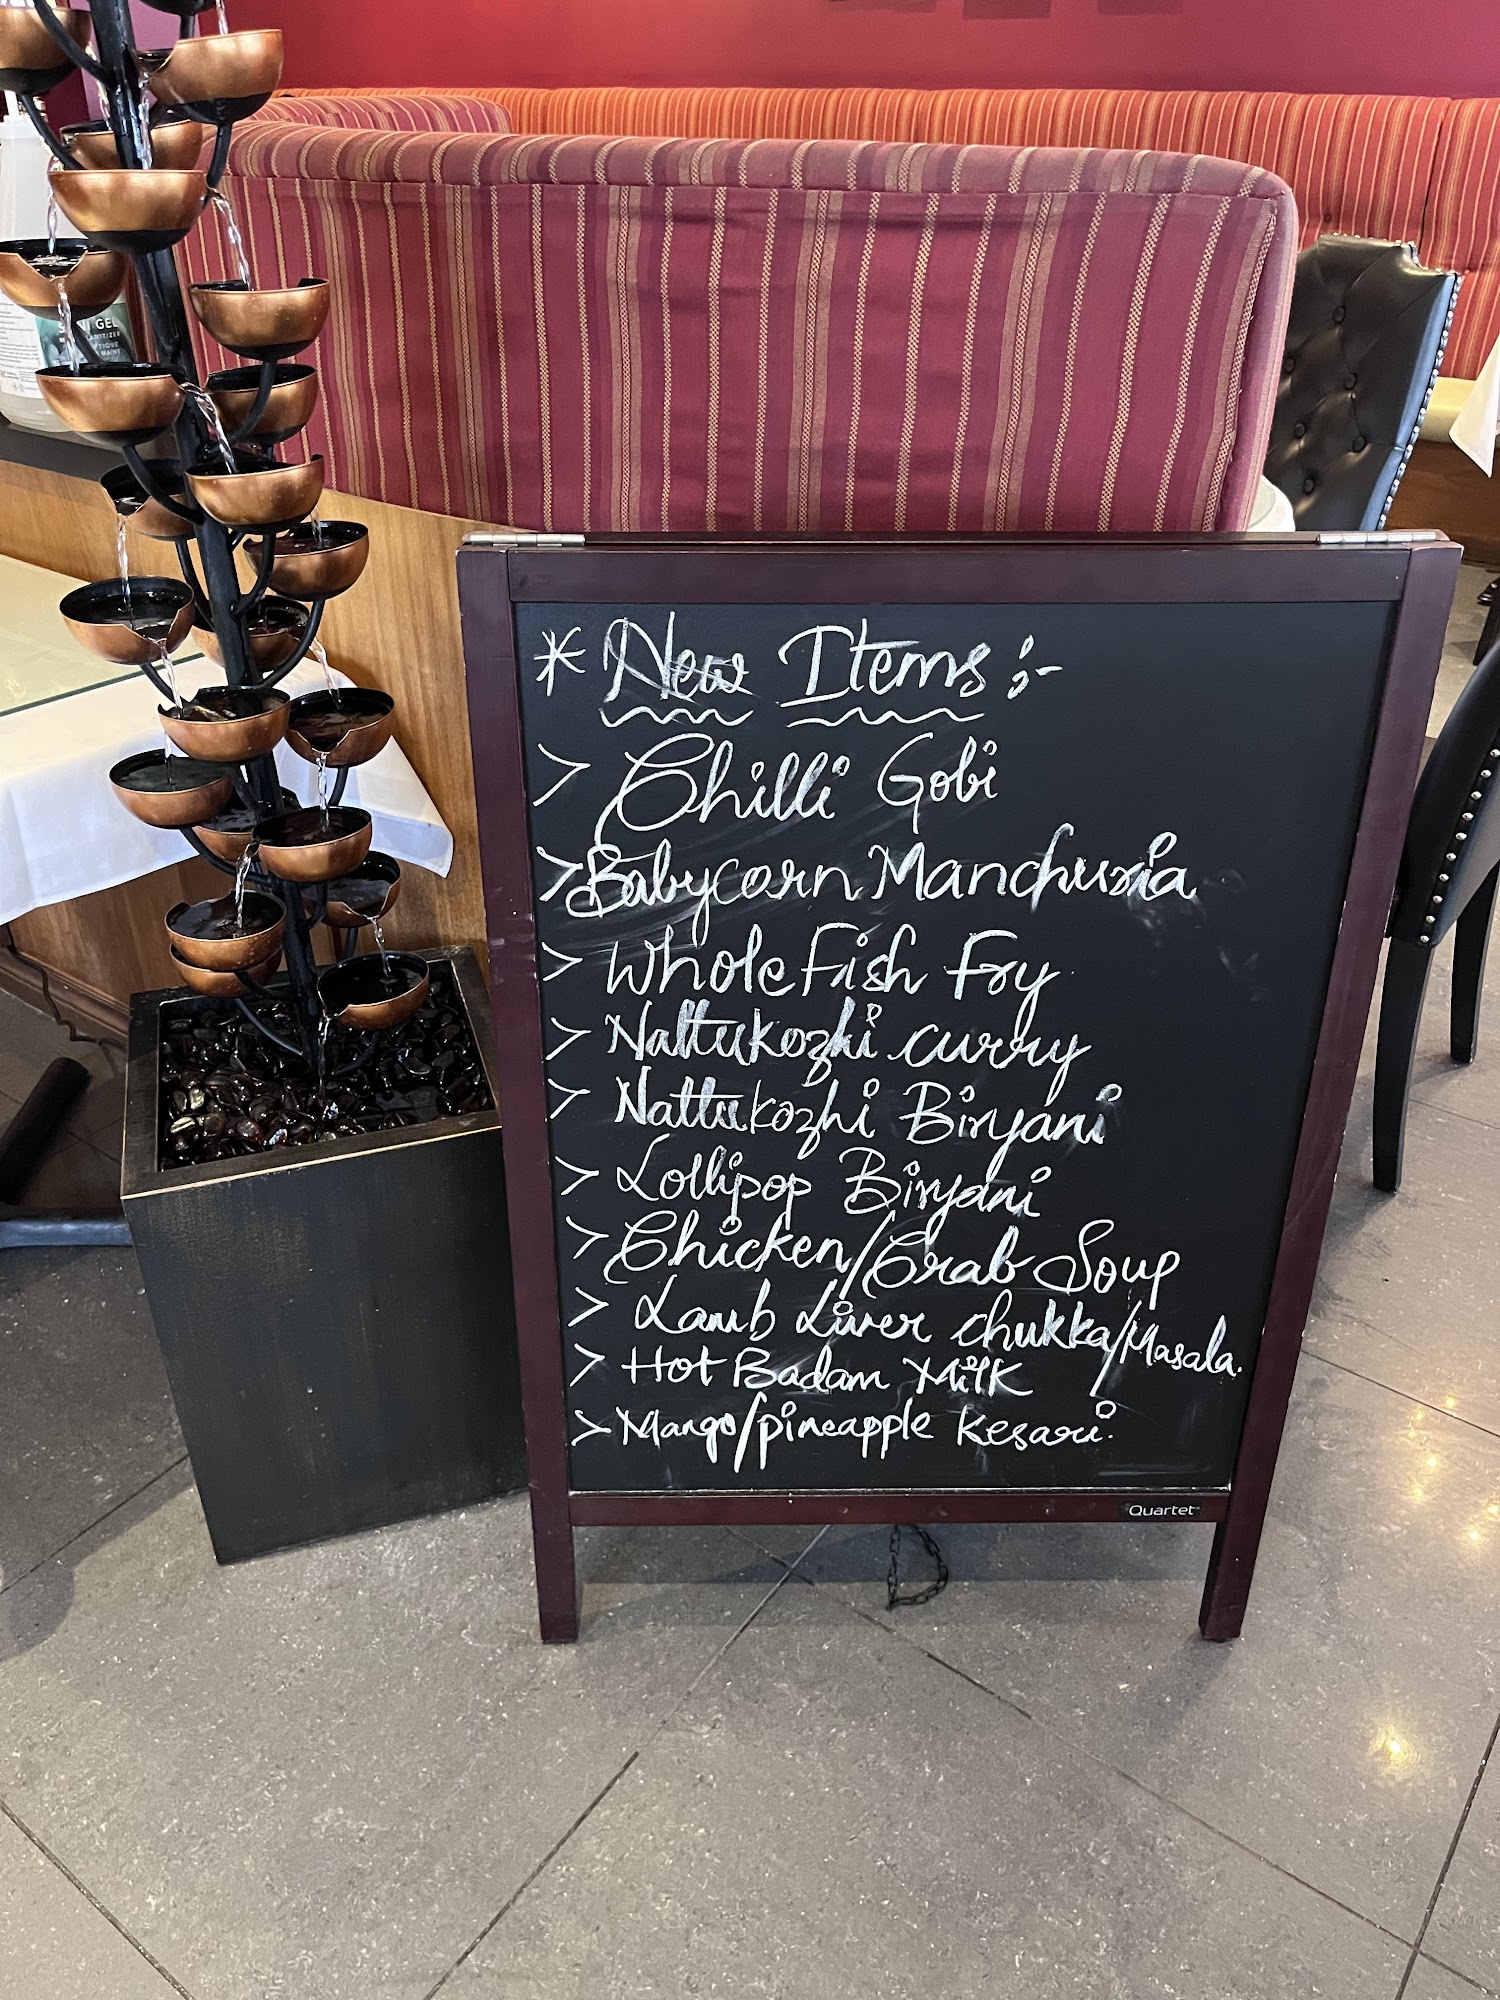 * New Items :-
> Chilli Gobi
> Babycorn Manchuria
> Whole Fish Fry
> Nattukozhi curry
> Nattukozhi Biryani
> Lollipop Biryani
> Chicken/Crab Soup
> Lamb Liver chukka/Masala.
> Hot Badam Milk
> Mango/pineapple kesari.
Quartet
GEL